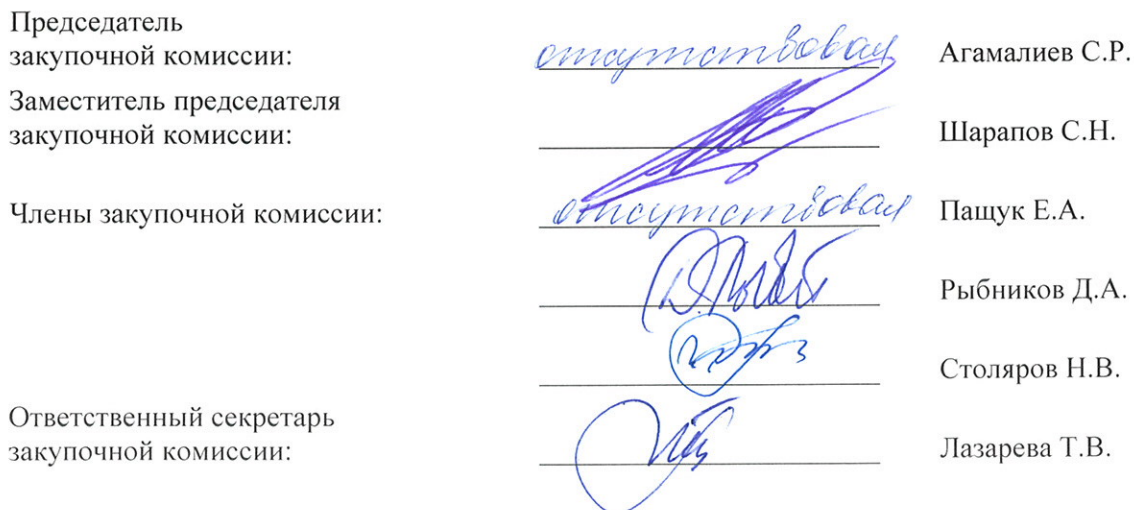 Председатель
закупочной комиссии: отсутствовал Агамалиев С.Р.
Заместитель председателя
закупочной комиссии: Шарапов С.Н.
Члены закупочной комиссии: отсутствовал Пащук Е.А.
Рыбников Д.А.
Столяров Н.В.
Ответственный секретарь
закупочной комиссии: Лазарева Т.В.